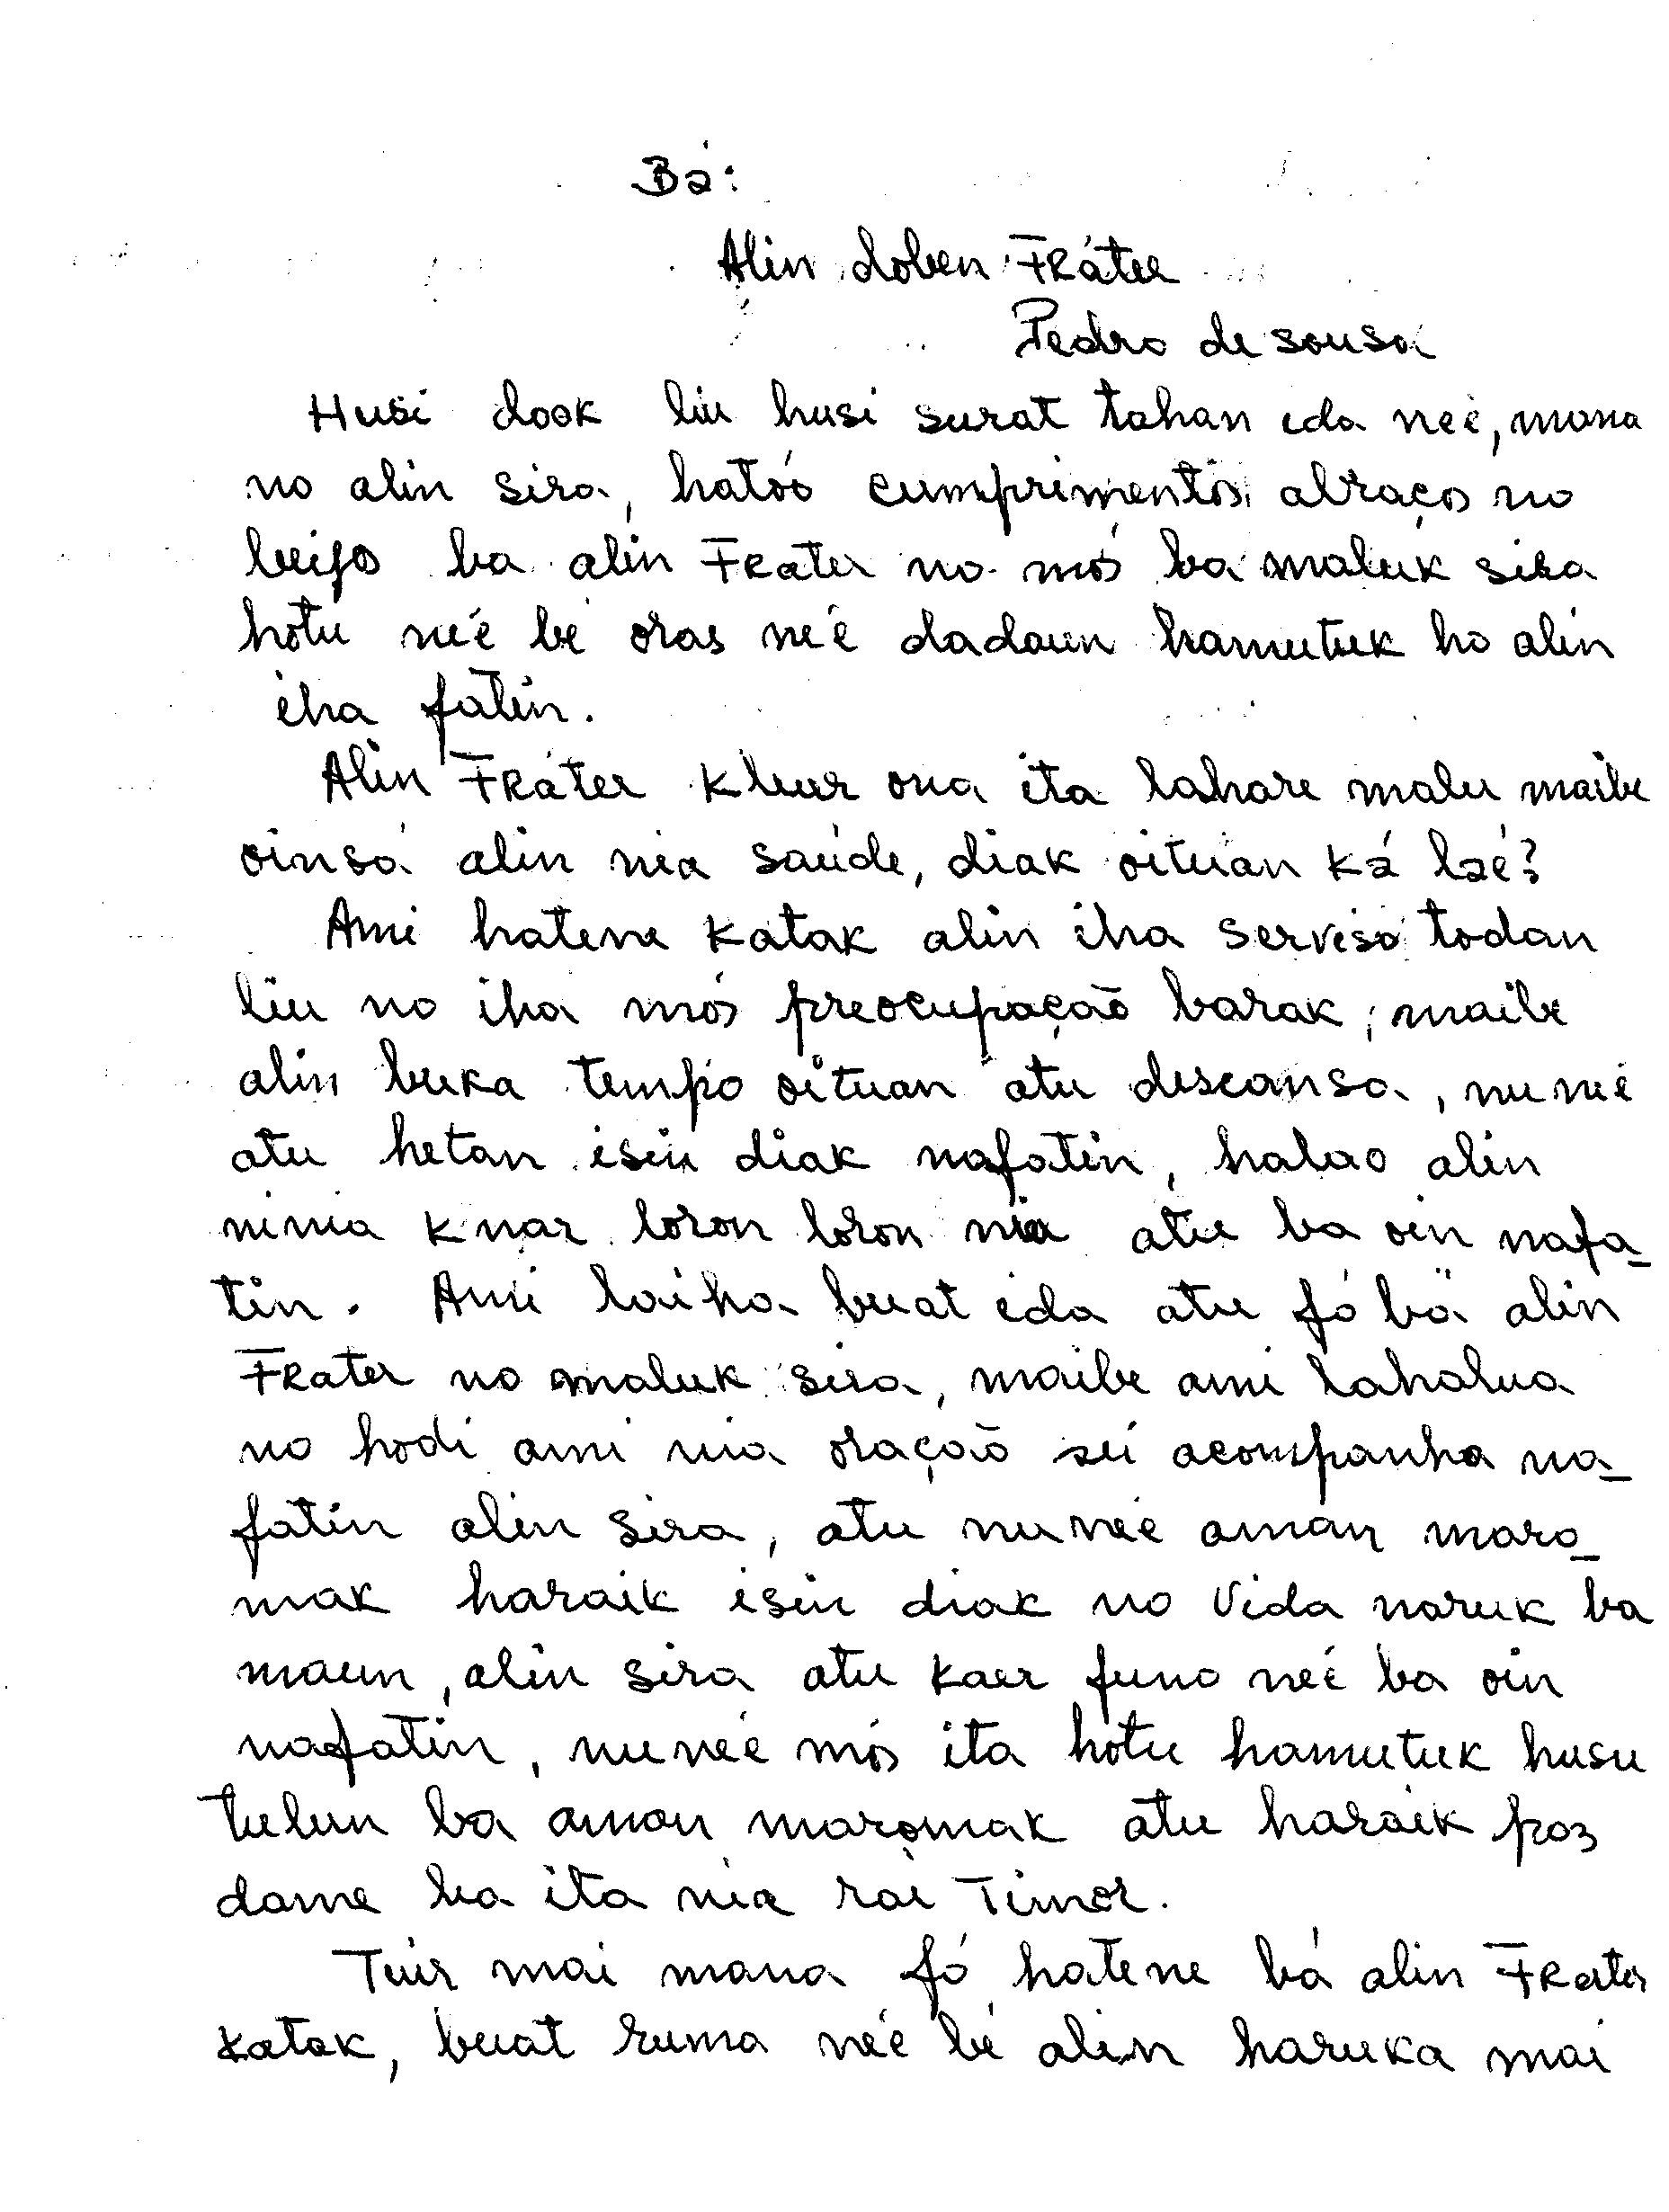 Bá:
Alin doben Fráter
Pedro de sousa
Husi dook liu husi surat tahan ida neé, mana
no alin sira, hatóo cumprimentos abraços no
beijo ba alin Frater no mós ba maluk sira
hotu neé bé oras neé dadaun hamutuk ho alin
iha fatin.
Alin Fráter kleur ona ita lahare malu maibe
oinsá alin nia saúde, diak oituan ká laé?
Ami hatene katak alin iha serviso todan
liu no iha mós preocupação barak, maibe
alin buka tempo oituan atu descansa, nuneé
atu hetan isin diak nafatin, halao alin
ninia knar loron loron nia atu ba oin nafa-
tin. Ami laiha buat ida atu fó bá alin
Frater no maluk sira, maibe ami lahalua
no hodi ami nia oração sei acompanha na-
fatin alin sira, atu nuneé aman maro-
mak haraik isin diak no vida naruk ba
maun, alin sira atu kaer funo neé ba oin
nafatin, nuneé mós ita hotu hamutuk husu
tulun ba aman maromak atu haraik paz
dame ba ita nia rai Timor.
Tuir mai mana fó hatene bá alin Frater
katak, buat ruma neé bé alin haruka mai